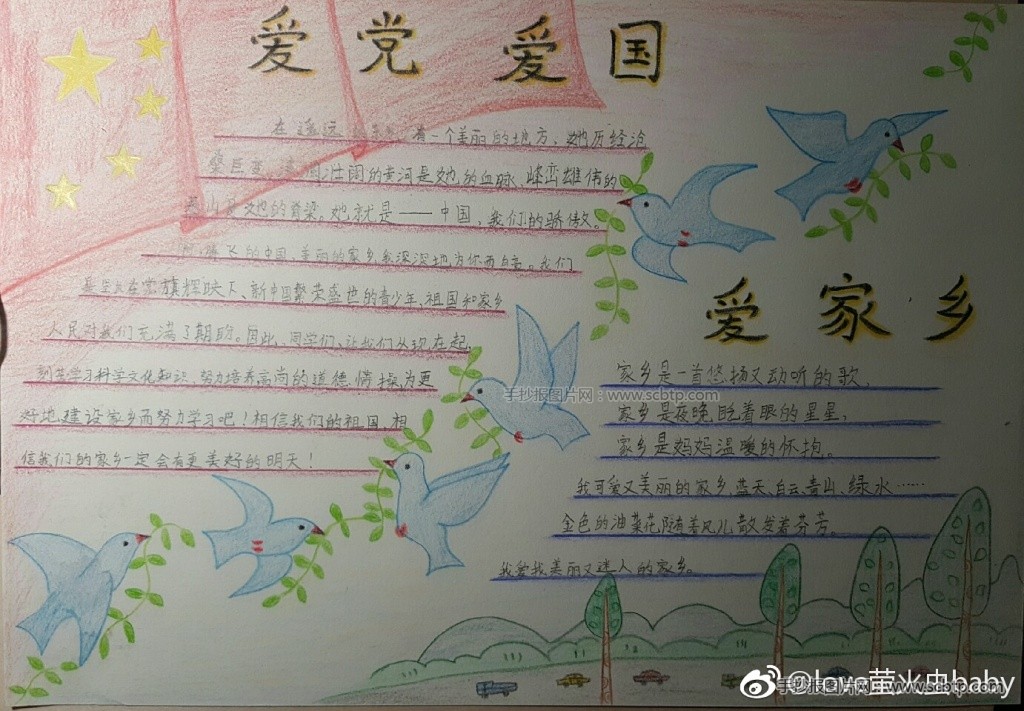 爱党 爱国
在遥远 有一个美丽的地方、她历经沧
桑巨变、 壮阔的黄河是她的血脉、峰峦雄伟的
山是她的脊梁。她就是——中国，我们的骄傲。
腾飞的中国、美丽的家乡 深深地为你而自 。我们
是生长在党旗辉映下、新中国繁荣盛世的青少年、祖国和家乡
人民对我们充满了期盼。因此、同学们、让我们从现在起、
刻苦学习科学文化知识、努力培养高尚的道德情操、为更
好地建设家乡而努力学习吧！相信我们的祖国、相
信我们的家乡一定会有更美好的明天！
爱家乡
家乡是一首悠扬又动听的歌、
家乡是夜晚眨着眼的星星、
家乡是妈妈温暖的怀抱。
我可爱又美丽的家乡、蓝天、白云、青山、绿水……
金色的油菜花、随着风儿散发着芬芳。
我爱我美丽又迷人的家乡。
手抄报图片网：www.scbtp.com
@love萤火虫baby
手抄报图片网：www.scbtp.com